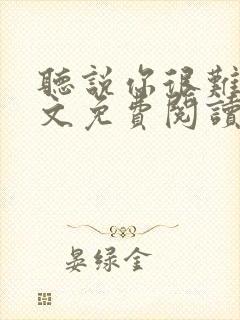 聽說你很難
文免費閱讀
晏绿金